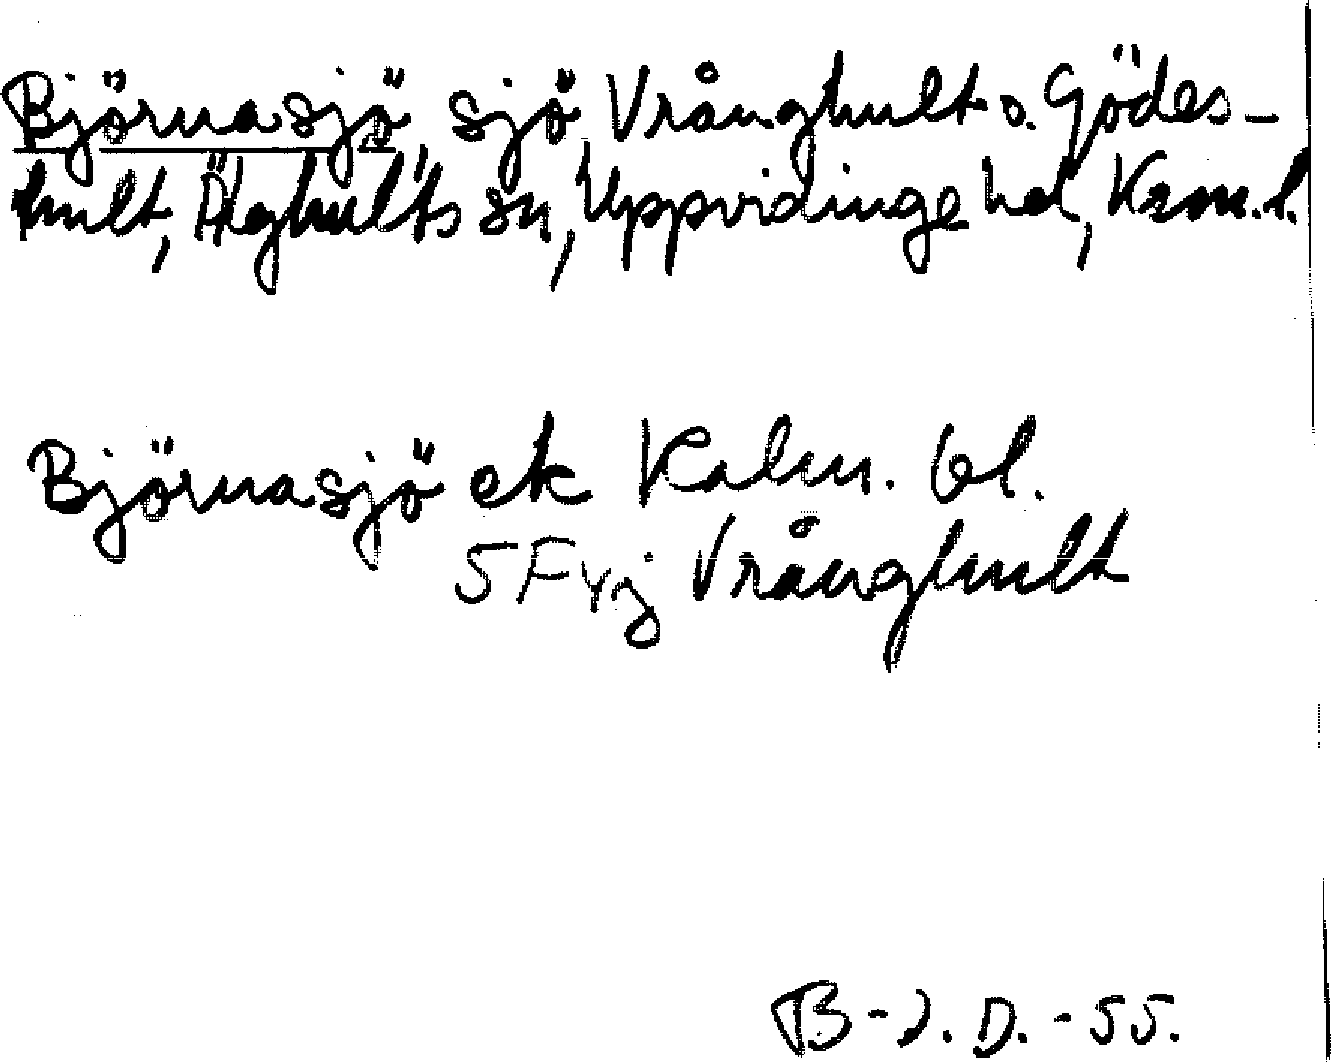 Björnasjö, sjö, Vrånghult o. Gödes-
hult, Älghults sn, Uppvidinge hd, Kron. l.
Björnasjö ek Kalm. bl.
5 F v j Vrånghult
B-J. D. -55.